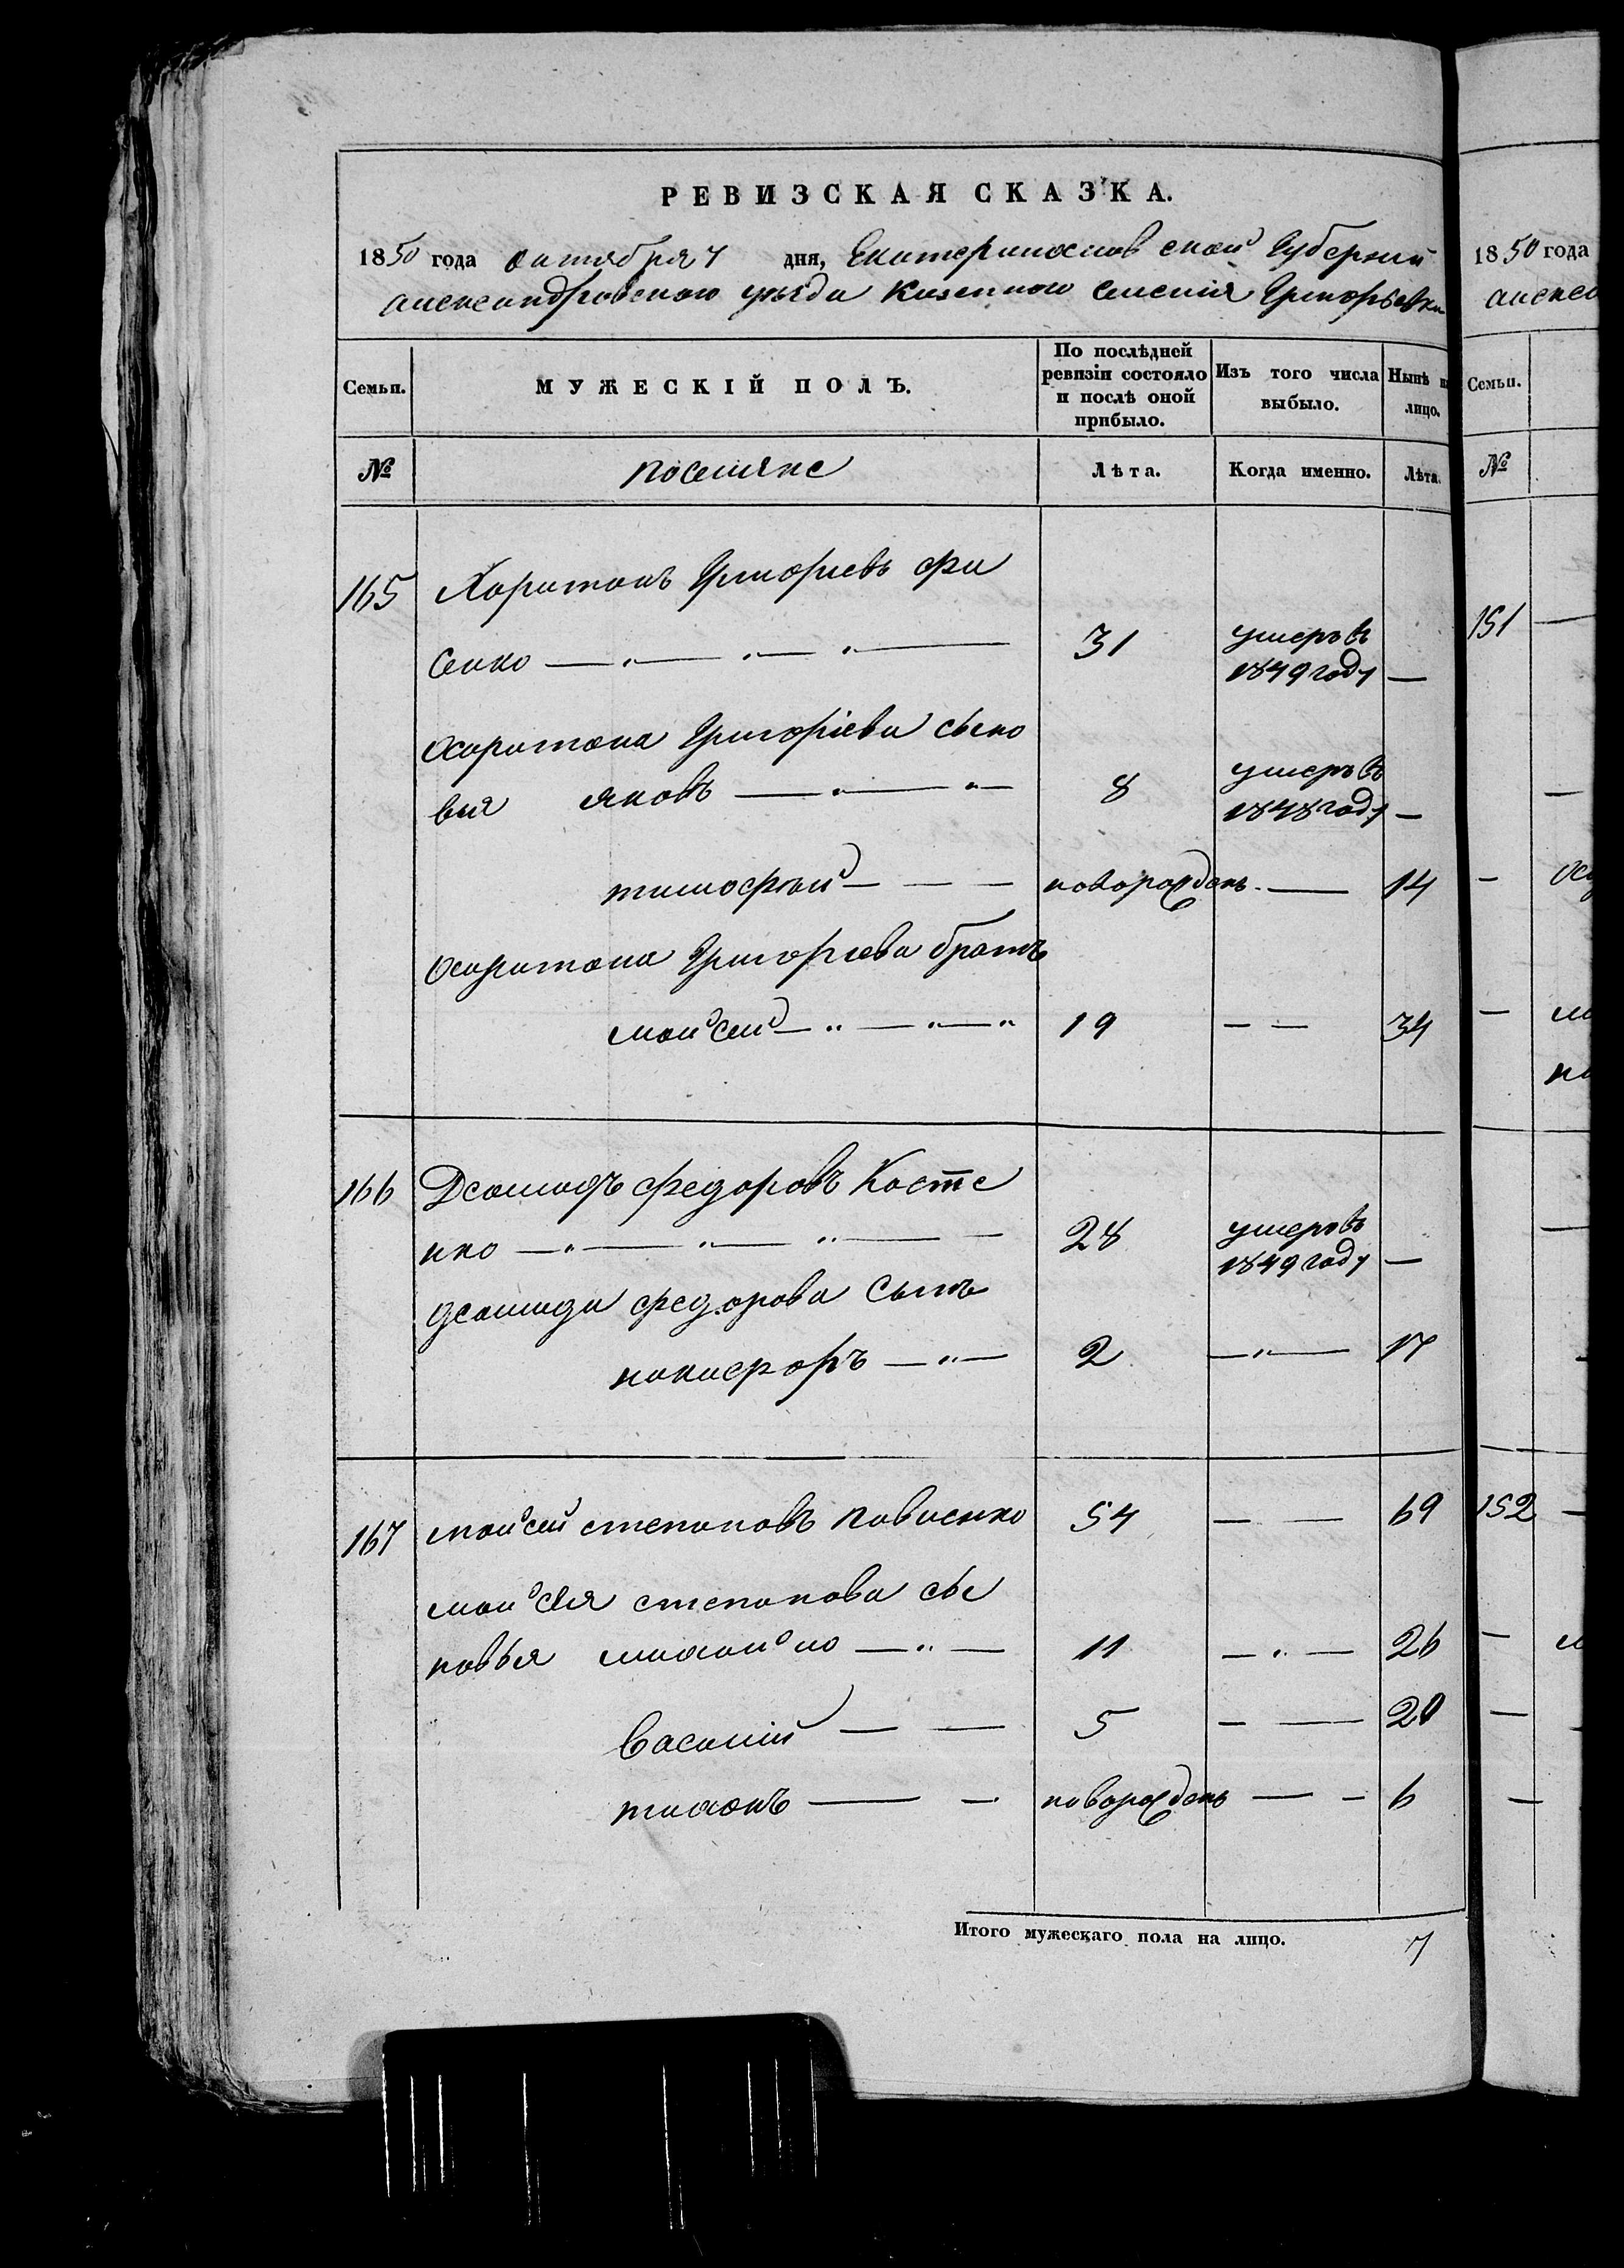 РЕВИЗСКАЯ СКАЗКА.
1850 года октября 7 дня, Екатеринослав ской Губернии
александровского уезда Казенного Селенія Григорьевки
Семьи. МУЖЕСКІЙ ПОЛЪ. По послѣдней ревизіи состояло и послѣ оной прибыло. Изъ того числа выбыло. Нынѣ на лицо.
№ поселяне Лѣта. Когда именно. Лѣта.
165 Харитонъ Григориевъ Фи
сенко 31 умеръ въ 1849 году —
Харитона Григоріева сыно
вья яковъ 8 умеръ въ 1848 году —
тимофей новорожденъ — 14
Харитона Григориева братъ
мойсей 19 — — 34
166 Демидъ федоровъ Косте
нко 28 умеръ въ 1849 году —
демида федорова Сынъ
никифоръ 2 — 17
167 мойсей степановъ Павленко 54 — — 69
мойсея степанова сы
новья михайло 11 — 26
Василий 5 — 20
тихонъ новорожденъ — 6
Итого мужескаго пола на лицо. 7
1850 года
Семьи.
№
151
152